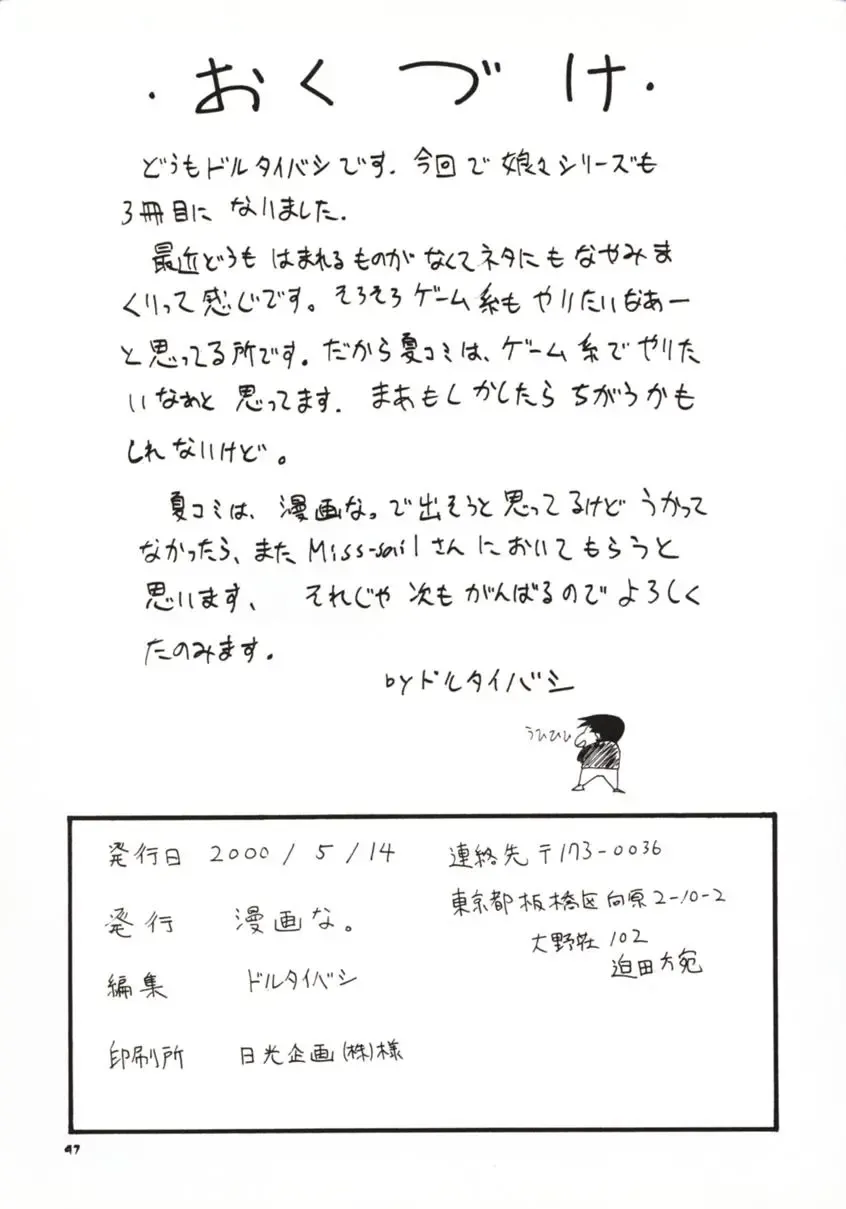 ・おくづけ・
どうもドルタイバシです. 今回で娘々シリーズも
3冊目に なりました.
最近どうも はまれるものが なくてネタにも なやみま
くりって 感じです。そろそろゲーム系も やりたいなあー
と思ってる所です。だから夏コミは、ゲーム系でやりた
いなぁと 思ってます. まあもしかしたら ちがうかも
しれないけど。
夏コミは、漫画な。で出そうと思ってるけど うかって
なかったら、また Miss-sailさんにおいてもらうと
思います、 それじゃ次もがんばるのでよろしく
たのみます。
byドルタイバシ
うひひひ
発行日 2000/5/14
発行 漫画な。
編集 ドルタイバシ
印刷所 日光企画(株)様
連絡先 〒173-0036
東京都板橋区向原2-10-2
大野荘102
迫田方宛
47